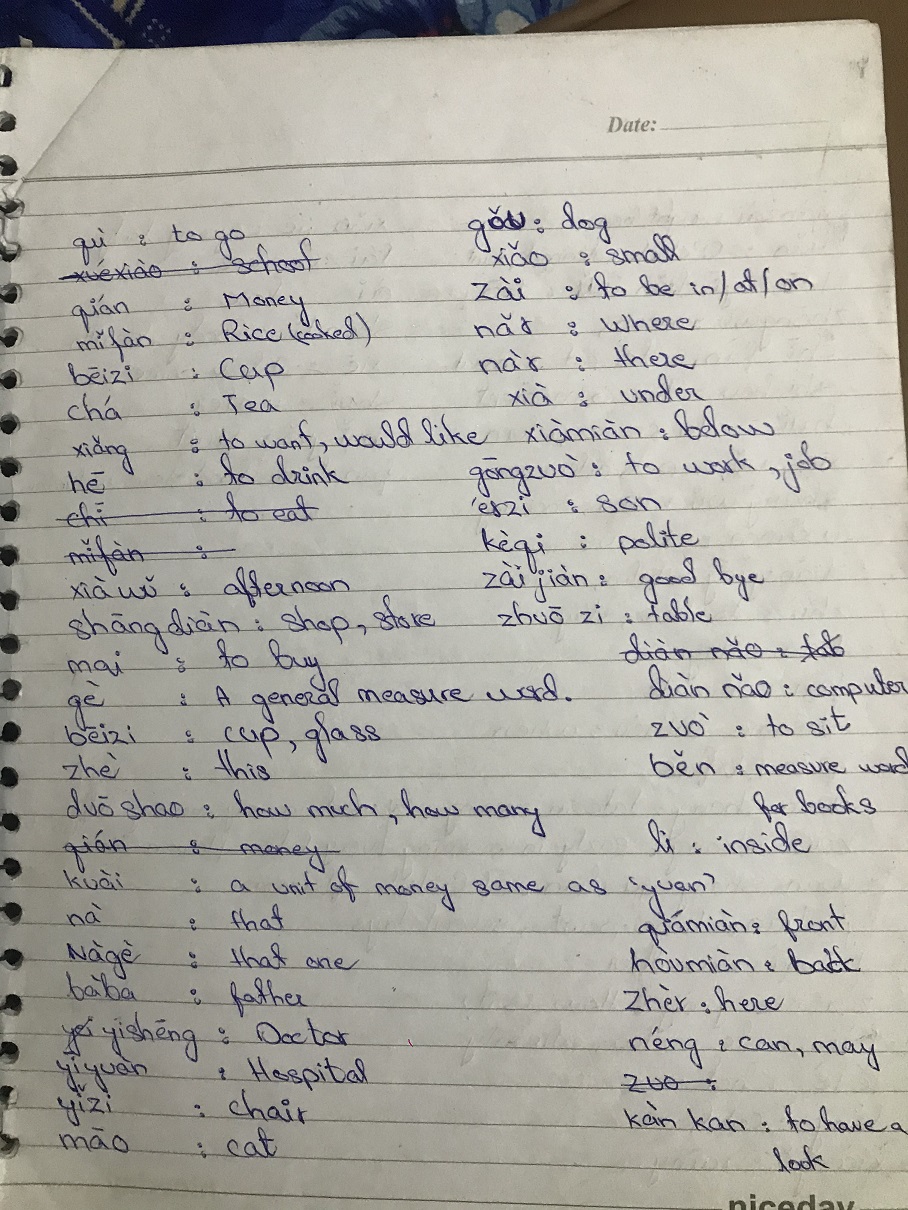 Date:
qù : to go
xuéxiào : school
qián : Money
mǐfàn : Rice (cooked)
bēizi : Cup
chá : Tea
xiǎng : to want, would like
hē : to drink
chī : to eat
mǐfàn :
xià wǔ : afternoon
shāng diàn : shop, store
mai : to buy
gè : A general measure word.
bēizi : cup, glass
zhè : this
duō shao : how much, how many
qián : money
kuài : a unit of money same as 'yuan'
nà : that
Nàgè : that one
bàba : father
yishēng : Doctor
yīyuàn : Hospital
yǐzi : chair
māo : cat
gǒu : dog
xiǎo : small
zài : to be in/at/on
nǎr : where
nàr : there
xià : under
xiàmiàn : below
gōngzuò : to work, job
érzi : son
kèqi : polite
zài jiàn : good bye
zhuō zi : table
diàn nǎo : tab
diàn nǎo : computer
zuò : to sit
běn : measure word
for books
li : inside
qiámiàn : front
hòumiàn : back
zhèr : here
néng : can, may
zuo :
kàn kan : to have a
look
niceday